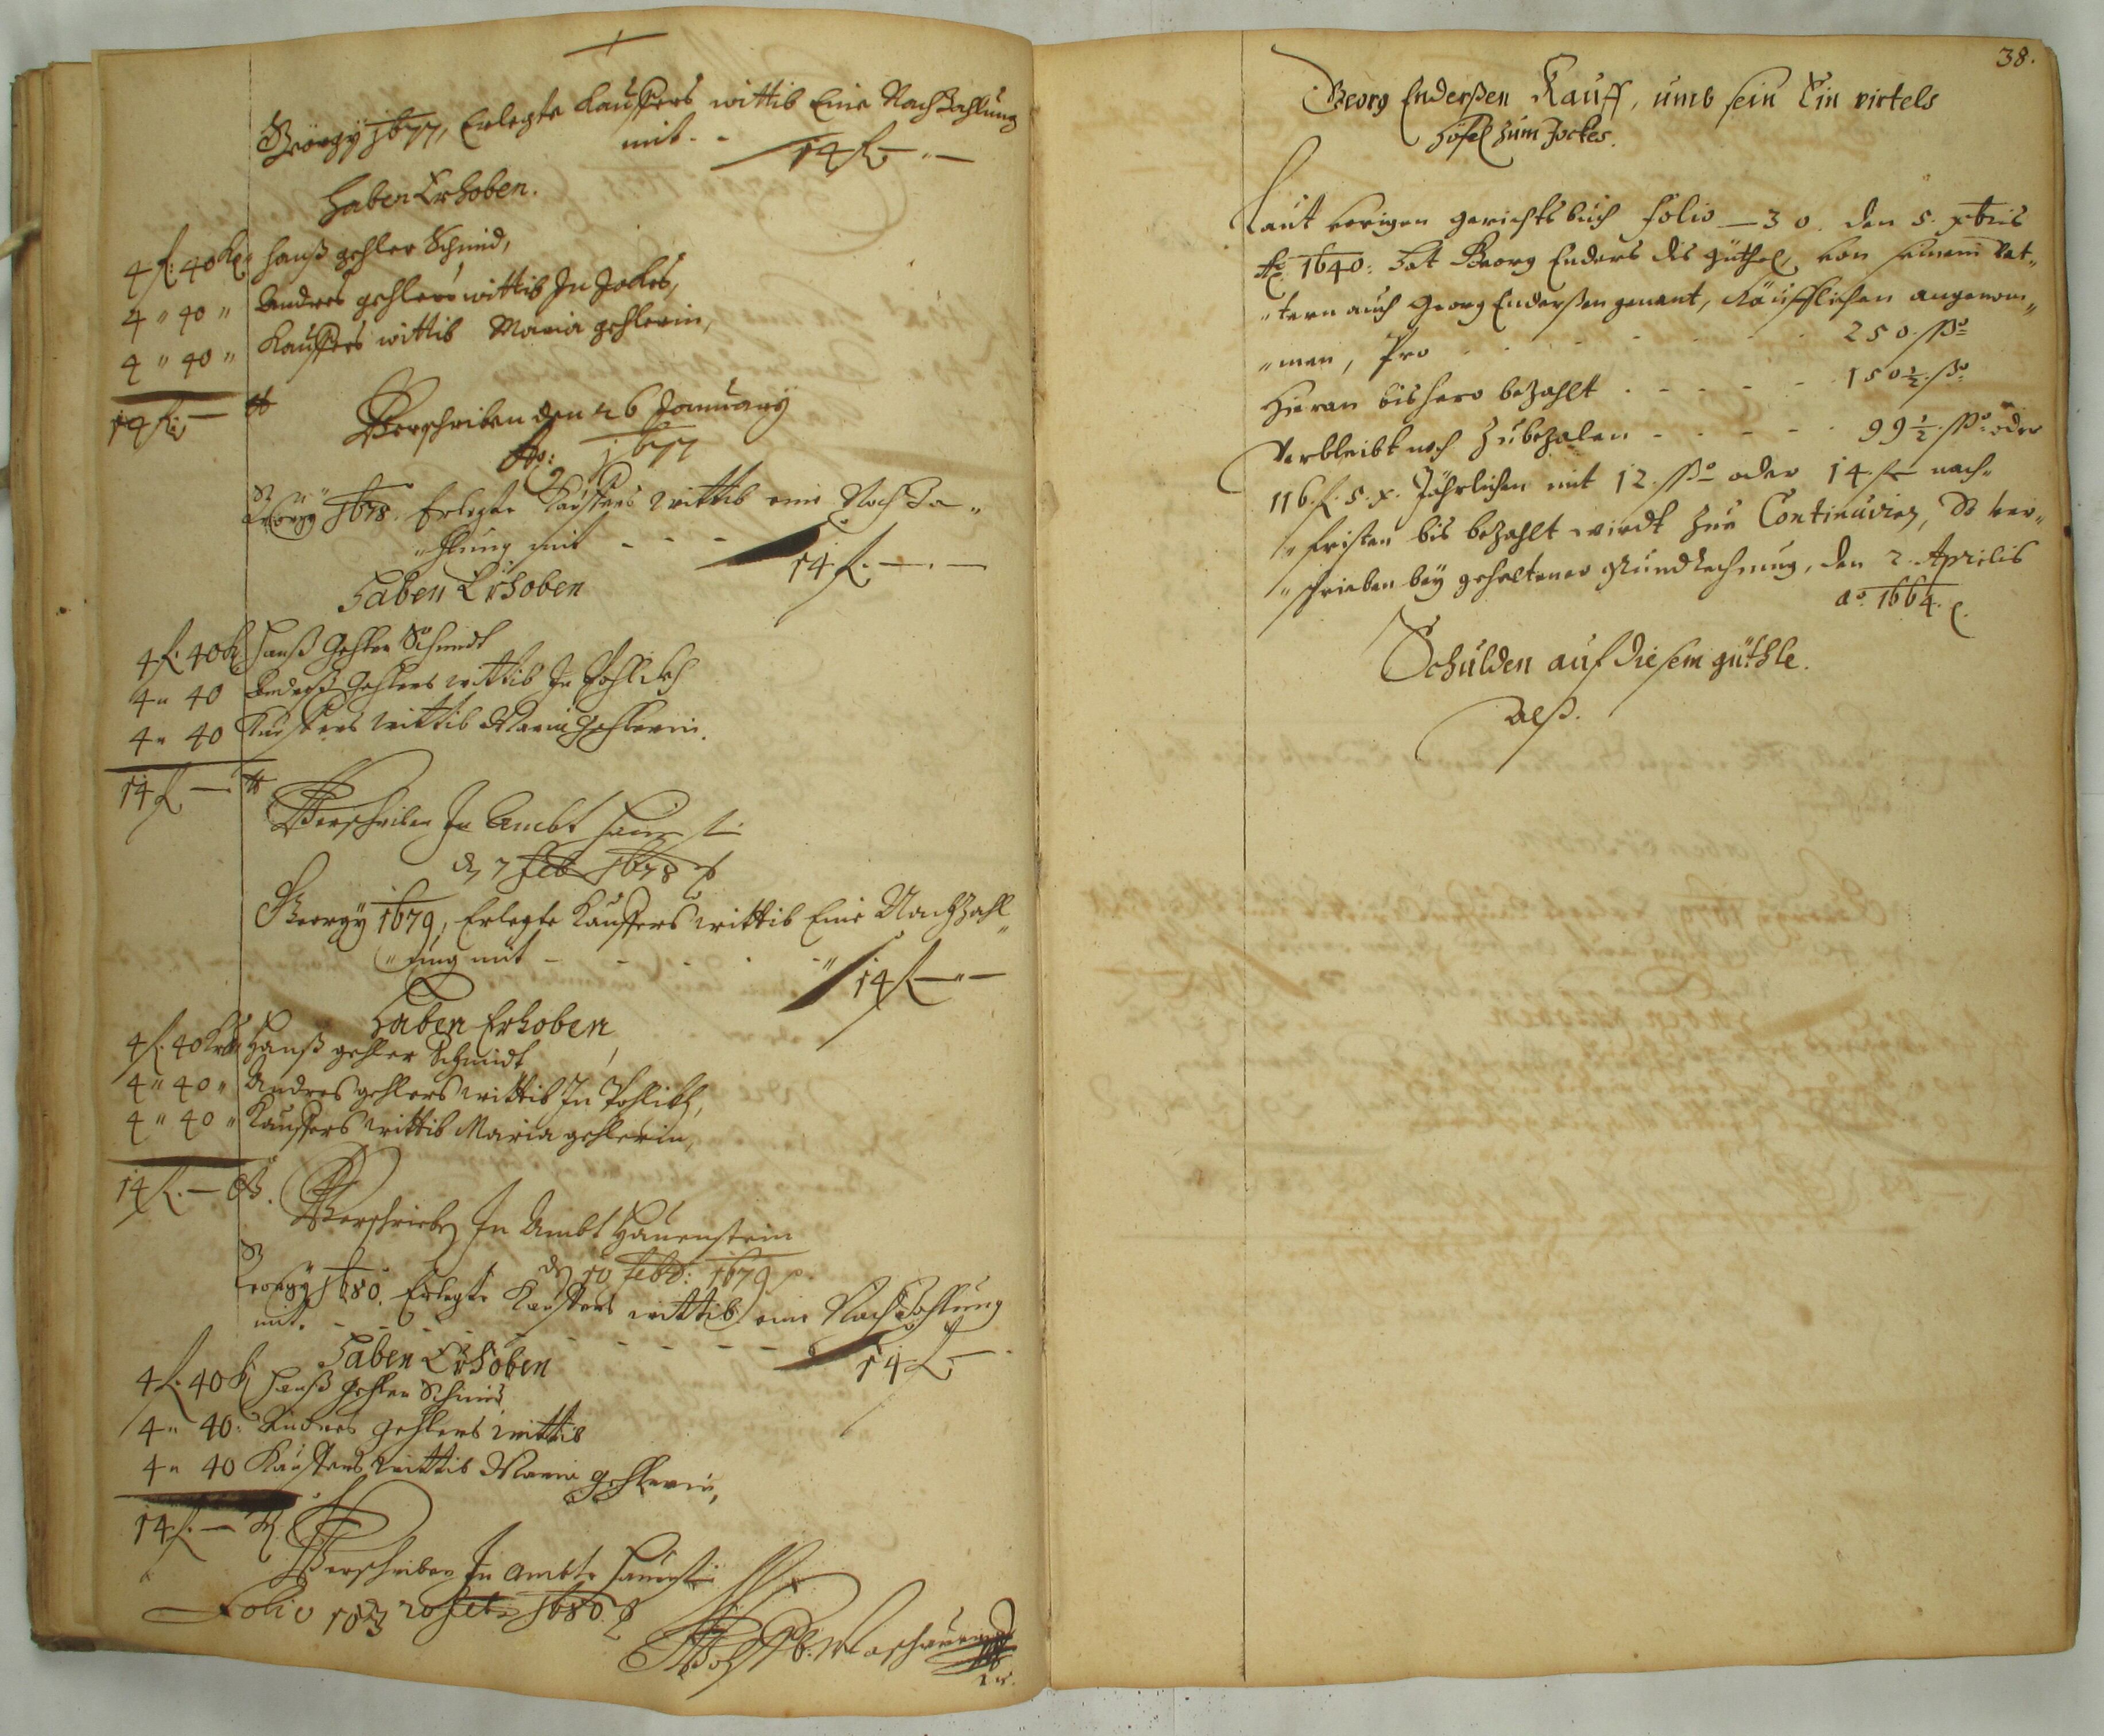 Georgÿ 1677, Erlegte Kauffers wittib Eine NachZahlung
mit - - 14 f -"-
Haben Erhoben.
4 f: 40 Kr: Hanß gehler Schmid,
4 " 40 " Andres gehlers wittib In Jokes,
4 " 40 " Kauffers wittib Maria gehlerin,
14 f: -
Verschriben den 26 January
Ao: 1677
Georgÿ 1678. Erlegte Kauffers wittib eine NachZa-
"hlung mit - - - 14 f. -.-
Haben Erhoben
4 f. 40 k Hanß Gehler Schmidt
4 " 40 Andreß Gehlers wittib In
4 " 40 Kauffers wittib Maria Gehlerin.
14 f -
Verschriben In Ambt
den 7 Feb 1678
Georgÿ 1679, Erlegte Kauffers wittib Eine NachZahl"
"ung mit - - - - 14 f -"-
Haben Erhoben,
4 f. 40 Hanß gehler Schmidt
4 " 40 " Andres gehlers wittib In
4 " 40 " Kauffers wittib Maria gehlerin,
14 f. -
Verschrieben In Ambt Hauenstein
den 10 Febr: 1679
Georgÿ 1680. Erlegte Kauffers wittib eine NachZahlung
mit. - - - - - - 14 f -
Haben Erhoben
4 f. 40 k Hanß Gehler Schmid
4 " 40: Andres Gehlers wittib
4 " 40 Kauffers wittib Maria Gehlerin,
14 f. -
Verschriben In Ambte
Folio 103 20 Feb 1680
38.
Georg Enderßen Kauff, umb sein Ein virtels
höfel zum Jockes.
Laut vorigen gerichtsbuch folio - 30. den 5. xbris
Ao. 1640: Hat Georg Enders dis güthel, von seinem Vat-
"tern auch Georg Enderßen genant, Käufflichen angenom"
"men, Pro - - - - - 250. ßo
Hieran bishero bezahlt . - - - - 150 ½. ßo
Verbleibt noch Zubezalen - - - - - 99 ½. ßo: oder
116. f. 5. x. Jährlichen mit 12. ßo oder 14. f nach"
"fristen bis bezahlt wirdt zue Continuiren, So ver"
"schrieben beÿ gehaltener Rechnung, den 2. Aprilis
ao. 1664.
Schulden auf diesem güthle.
alß.